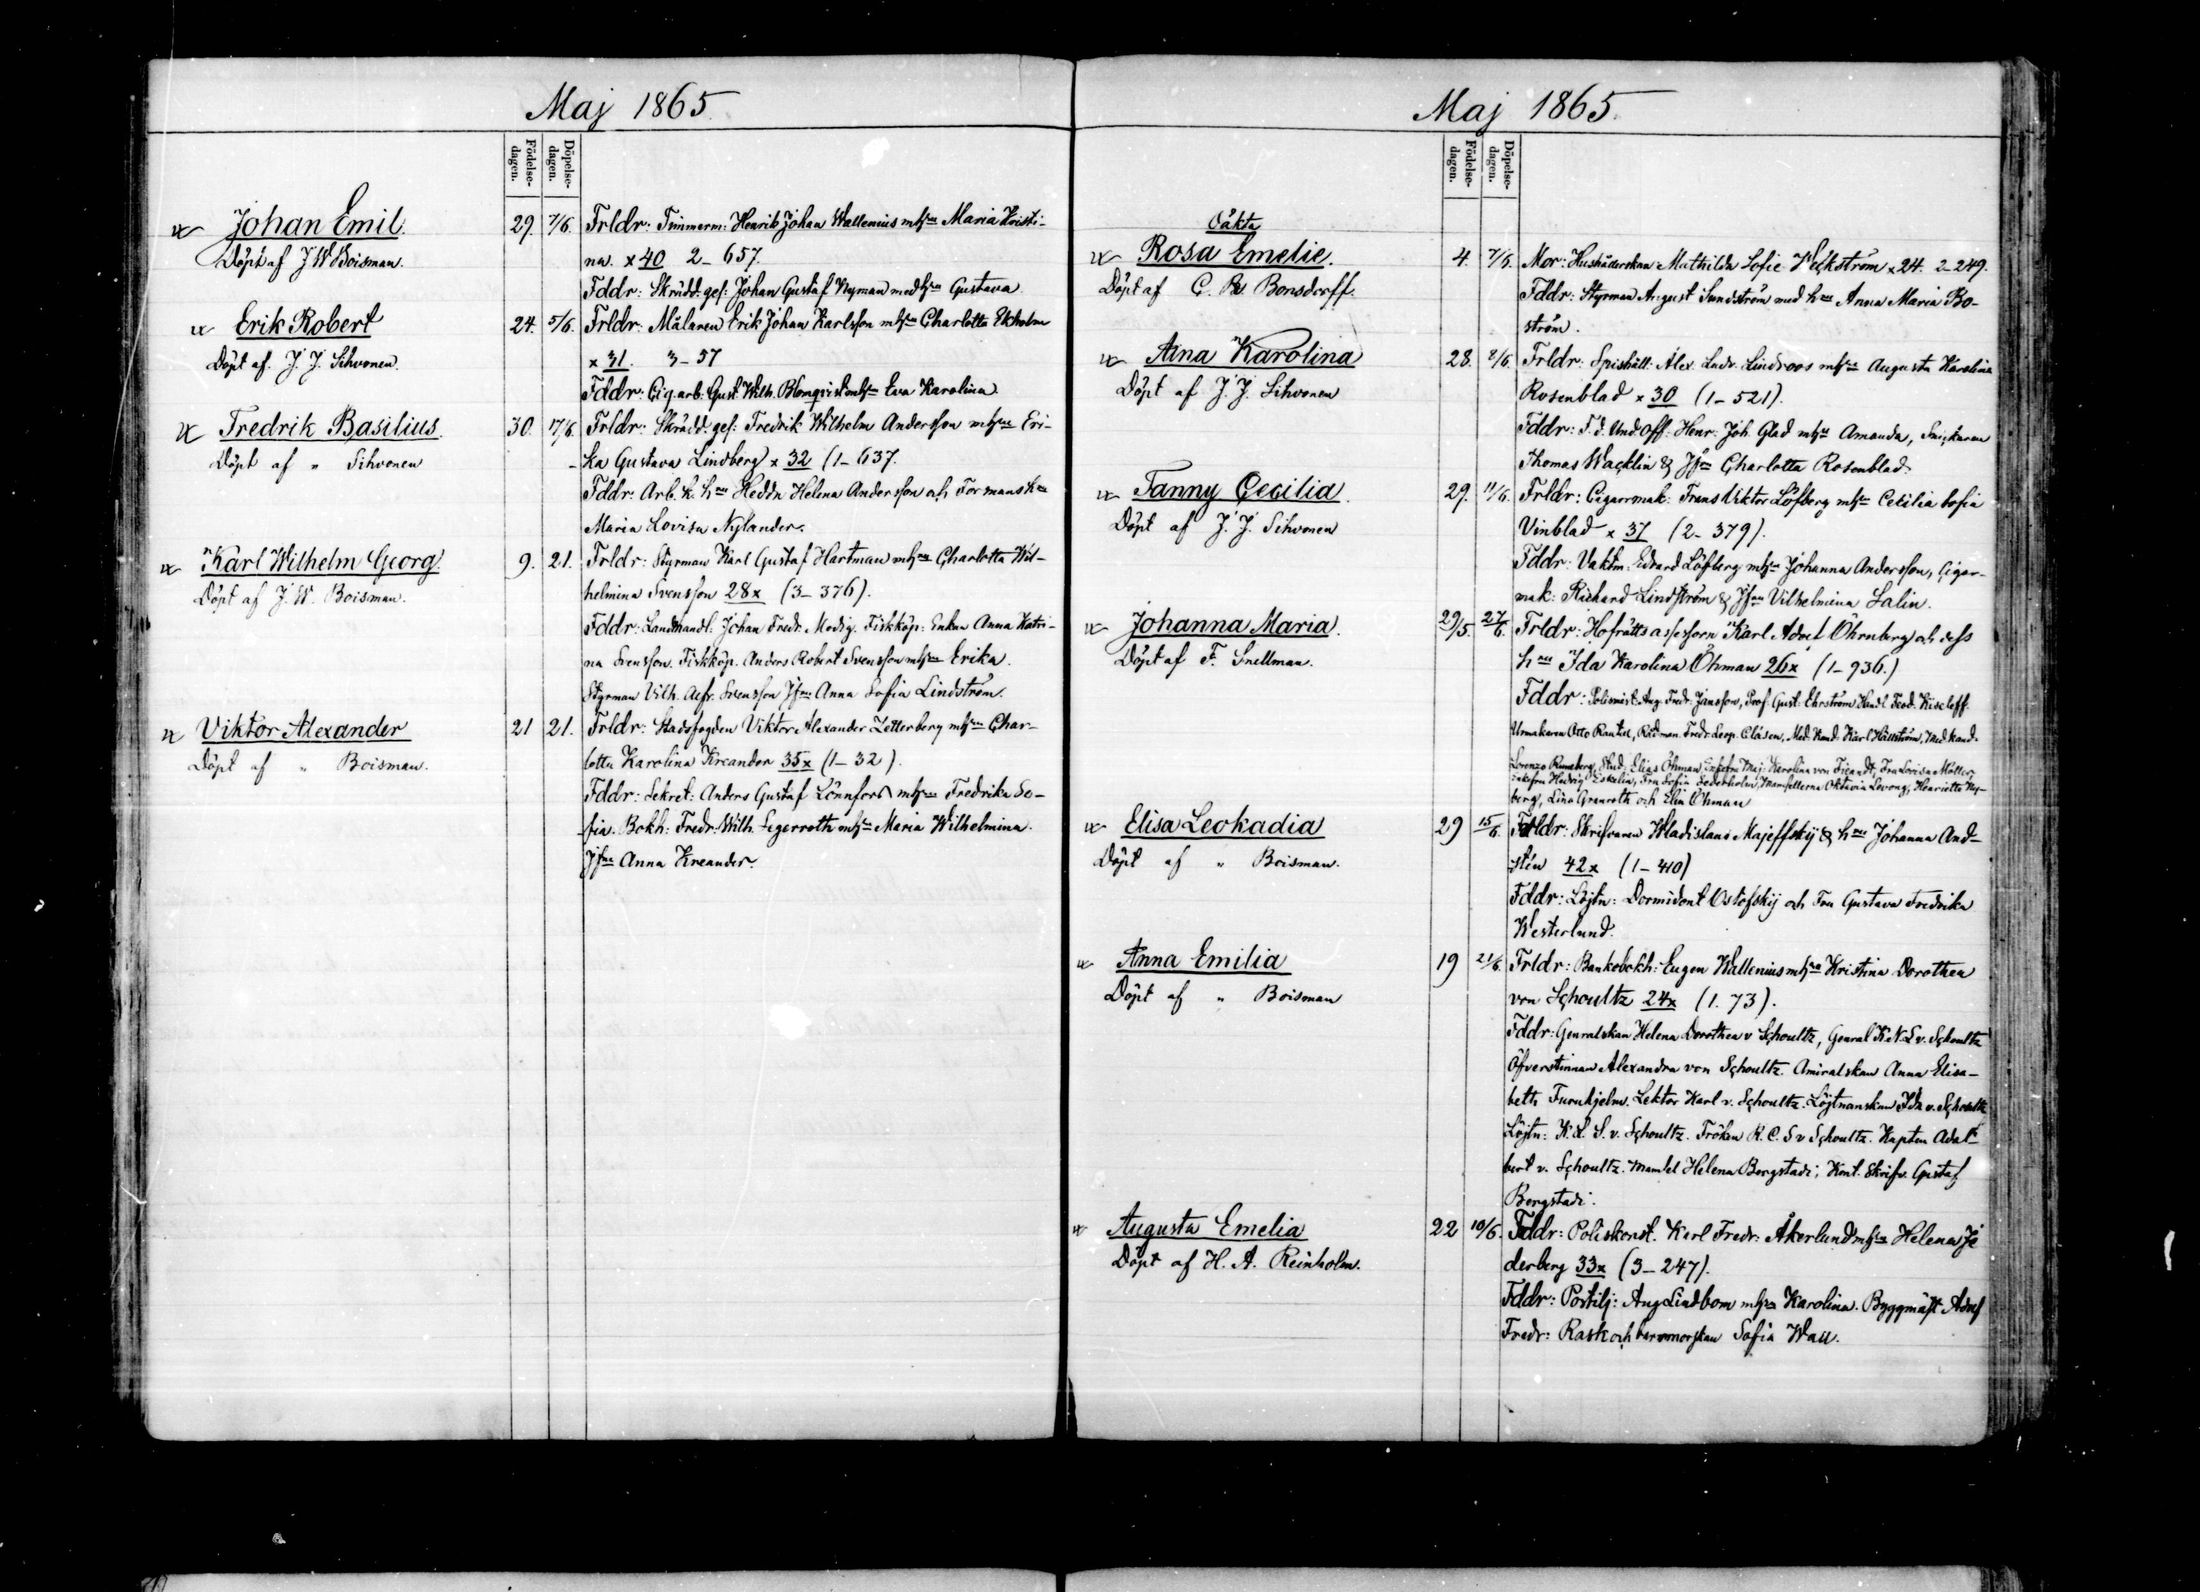 Maj 1865.
Födelse-
dagen.
Döpelse-
dagen.
Johan Emil.
Döpt af J W Boisman.
29. 7/6. Frldr: Timmerm: Henrik Johan Wallenius mhu Maria Kristi-
na. x 40 2-657.
Fddr: Skrädd. ges: Johan Gustaf Nyman med hu Gustava
Erik Robert
Döpt af. J. J. Sihvonen.
24. 5/6. Frldr: Målaren Erik Johan Karlsson mhu Charlotta Ekholm
x 31. 3-57
Fddr: Cig. arb: Gust. Wilh. Blomqvist mhu Eva Karolina
Fredrik Basilius.
Döpt af " Sihvonen
30. 17/6. Frldr: Skrädd. ges: Fredrik Wilhelm Andersson mhu Eri-
ka Gustava Lindberg x 32 (1-637.
Fddr: Arb. k. hu Hedda Helena Andersson och Formans hu
Maria Lovisa Nylander.
Karl Wilhelm Georg.
Döpt af J. W. Boisman.
9. 21. Frldr: Styrman Karl Gustaf Hartman mhu Charlotta Wil-
helmina Svensson 28x (3-376).
Fddr: Landthandl: Johan Fredr. Modig. Fiskköp: Enkan Anna Katri-
na Svensson. Fiskköp. Anders Robert Svensson mhu Erika.
Styrman Vilh. Alfr. Svensson Jfru Anna Sofia Lindström.
Viktor Alexander
Döpt af " Boisman.
21 21. Frldr: Stadsfogden Viktor Alexander Zetterberg mhu Char-
lotta Karolina Kreander 35x (1-32).
Fddr: Sekret: Anders Gustaf Lönnfors mhu Fredrika So-
fia. Bokh: Fredr. Wilh. Segerroth mhu Maria Wilhelmina.
Jfru Anna Kreander.
Maj 1865.
Födelse-
dagen.
Döpelse-
dagen.
Oäkta
Rosa Emelie.
Döpt af C. R. Bonsdorff.
4. 7/6. Mor: Hushållerskan Mathilda Sofie Weckström x 24. 2-249.
Fddr: Styrman August Sundström med hu Anna Maria Bo-
ström.
Aina Karolina
Döpt af J. J. Sihvonen
28. 8/6. Frldr: Spishåll: Alex. Ludv. Lindroos mhu Augusta Karolina
Rosenblad x 30 (1-521).
Fddr: F. d. Und. Off: Henr: Joh. Glad mhu Amanda, Snickaren
Thomas Wacklin & Jfru Charlotta Rosenblad.
Fanny Cecilia.
Döpt af J. J. Sihvonen
29. 11/6. Frldr: Cigarrmak: Frans Viktor Löfberg mhu Cecilia Sofia
Vinblad x 37 (2-379).
Fddr: Vaktm: Edvard Löfberg mhu Johanna Andersson, Cigar-
mak: Richard Lindström & Jfru Vilhelmina Salin.
Johanna Maria.
Döpt af F. Snellman.
29/5. 27/6. Frldr: Hofrättsassessorn Karl Advet Öhrnberg och dess
hu Ida Karolina Öhman 26x (1-936.)
Fddr: Polismäst. Aug. Fredr. Jansson, Prof. Gust: Ehrström Handl. Feod. Kiseleff.
Urmakaren Otto Rantzl, Rådman. Fredr. Leop. Clasen, Med. Kand. Karl Hällström, Med. kand.
Lorenzo Runeberg, Stud. Elias Öhman Enkefru Maj. Karolina von Fieandt, Fru Lovisa Möller,
Enkefru Hedvig Eskelin, Fru Sofia Sederholm, Mamsellerna Oktavia Levong, Henriette Ny-
berg, Lina Granroth och Elin Öhman
Elisa Leokadia
Döpt af " Boisman.
29 15/6. Frldr: Skrifvaren Wladislaus Majeffskij & hu Johanna And-
stén 42x (1-410)
Fddr: Löjtn: Dormident Ostofskij och Fru Gustava Fredrika
Westerlund.
Anna Emilia
Döpt af " Boisman
19 21/6. Frldr: Bankobokh: Eugen Wallenius mhu Kristina Dorothea
von Schoultz 24x (1. 73).
Fddr: Genralskan Helena Dorothea v Schoultz, Genral K. N. S v. Schoultz
Öfverstinnan Alexandra von Schoultz. Amiralskan Anna Elisa-
beth Furuhjelm. Lektor Karl v. Schoultz. Löjtnanskan Ida v. Schoultz
Löjtn: K. L. S. v. Schoultz. Fröken K. C. S v Schoultz. Kapten Adal-
bert v. Schoultz. Mamsel Helena Bergstadi; Kont. Skrifv. Gustaf
Bergstadi.
Augusta Emelia
Döpt af H. A. Reinholm.
22 10/6. Fddr: Poliskonst. Karl Fredr: Åkerlund mhu Helena Sö
derberg 33x (3-247).
Fddr: Postilj: Aug Lindbom mhu Karolina. Byggmäst Adolf
Fredr: Rask och barnmorskan Sofia Wall.